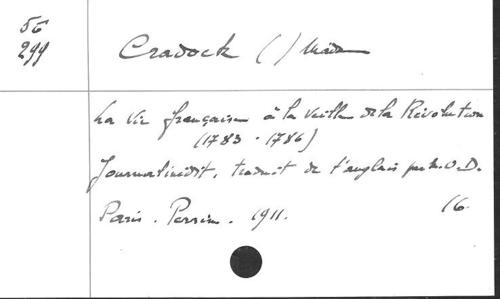 56
299
Cradock ( ) Mme
La Vie française à la veille de la Révolution
(1783 - 1786)
Journal inédit, traduit de l'anglais par O. D.
Paris. Perrin. 1911. 16